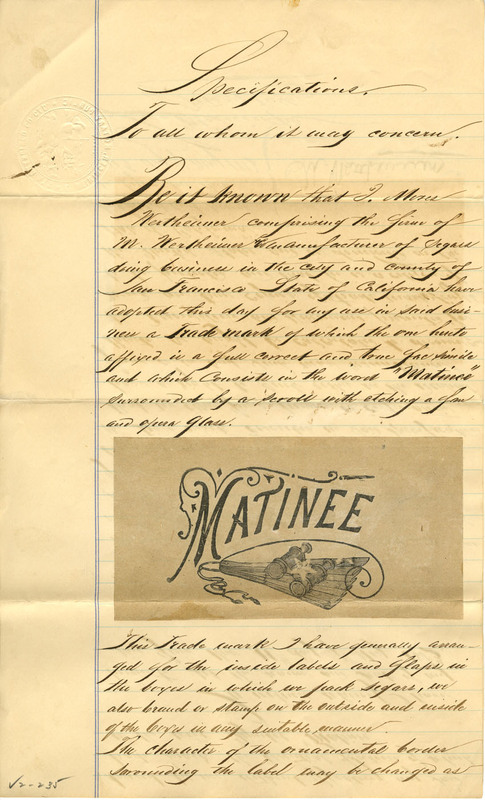 Specifications.
To all whom it may concern.
Be it known that I, Mone
Wertheimer comprising the firm of
M. Wertheimer & manufacturer of Segars
doing business in the city and county of
San Francisco State of California have
adopted this day for my use in said busi-
ness a Trade mark of which the one hereto
affixed is a full correct and true fac simile
and which consists in the word "Matinee"
surrounded by a scroll with etching a fan
and opera glass.
MATINEE
This Trade mark I have generally arran-
ged for the inside labels and flaps in
the boxes in which we pack segars, we
also brand or stamp on the outside and inside
of the boxes in any suitable manner.
The character of the ornamental border
surrounding the label may be changed as
V2-235